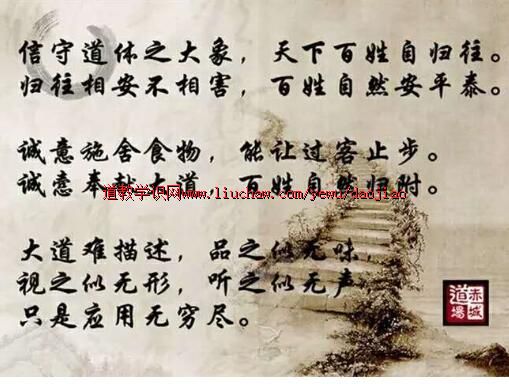 信守道体之大象，天下百姓自归往。
归往相安不相害，百姓自然安平泰。
诚意施舍食物，能让过客止步。
诚意奉献大道，百姓自然归附。
道教学识网www.liuchaw.com/yewu/daojiao
大道难描述，品之似无味，
视之似无形，听之似无声
只是应用无穷尽。
赤城
道场